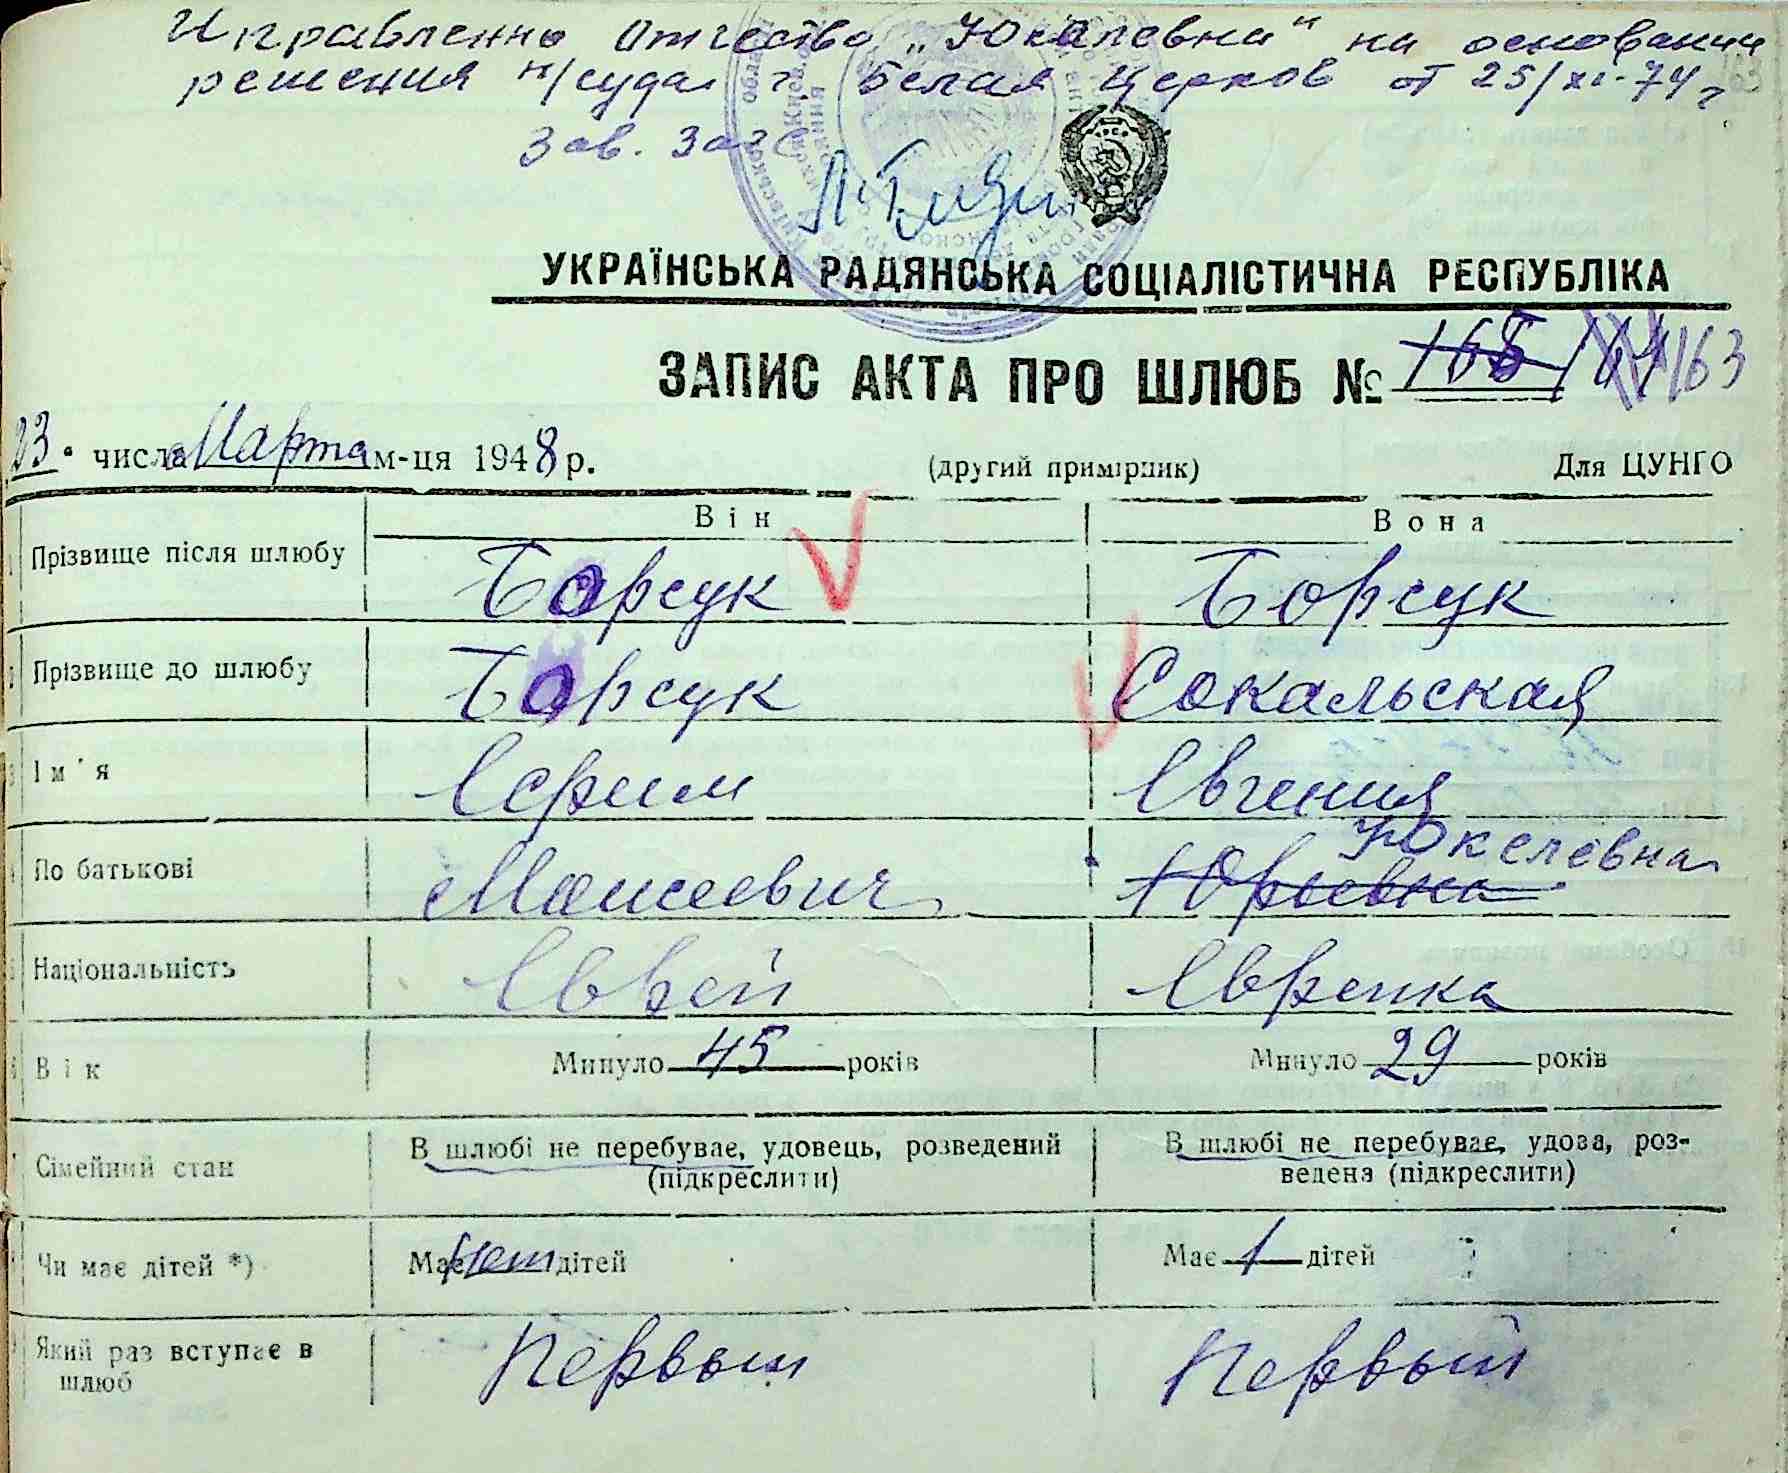 Исправленно отчество „Юкелевна“ на основании
решения н/суда г. Белая Церков от 25/XI-74 г.
Зав. Загс
УКРАЇНСЬКА РАДЯНСЬКА СОЦІАЛІСТИЧНА РЕСПУБЛІКА
ЗАПИС АКТА ПРО ШЛЮБ № 163
23. числа Марта м-ця 1948 р. (другий примірник) Для ЦУНГО
Він Вона
Прізвище після шлюбу Борсук Борсук
Прізвище до шлюбу Борсук Сокальская
Ім'я Ефрим Евгения
Юкелевна
По батькові Моисеевич Юрьевна
Національність Еврей Еврейка
Вік Минуло 45 років Минуло 29 років
Сімейний стан В шлюбі не перебуває, удовець, розведений (підкреслити) В шлюбі не перебуває, удова, роз-
ведена (підкреслити)
Чи має дітей *) Має нет дітей Має 1 дітей
Який раз вступає в Первый Первый
шлюб